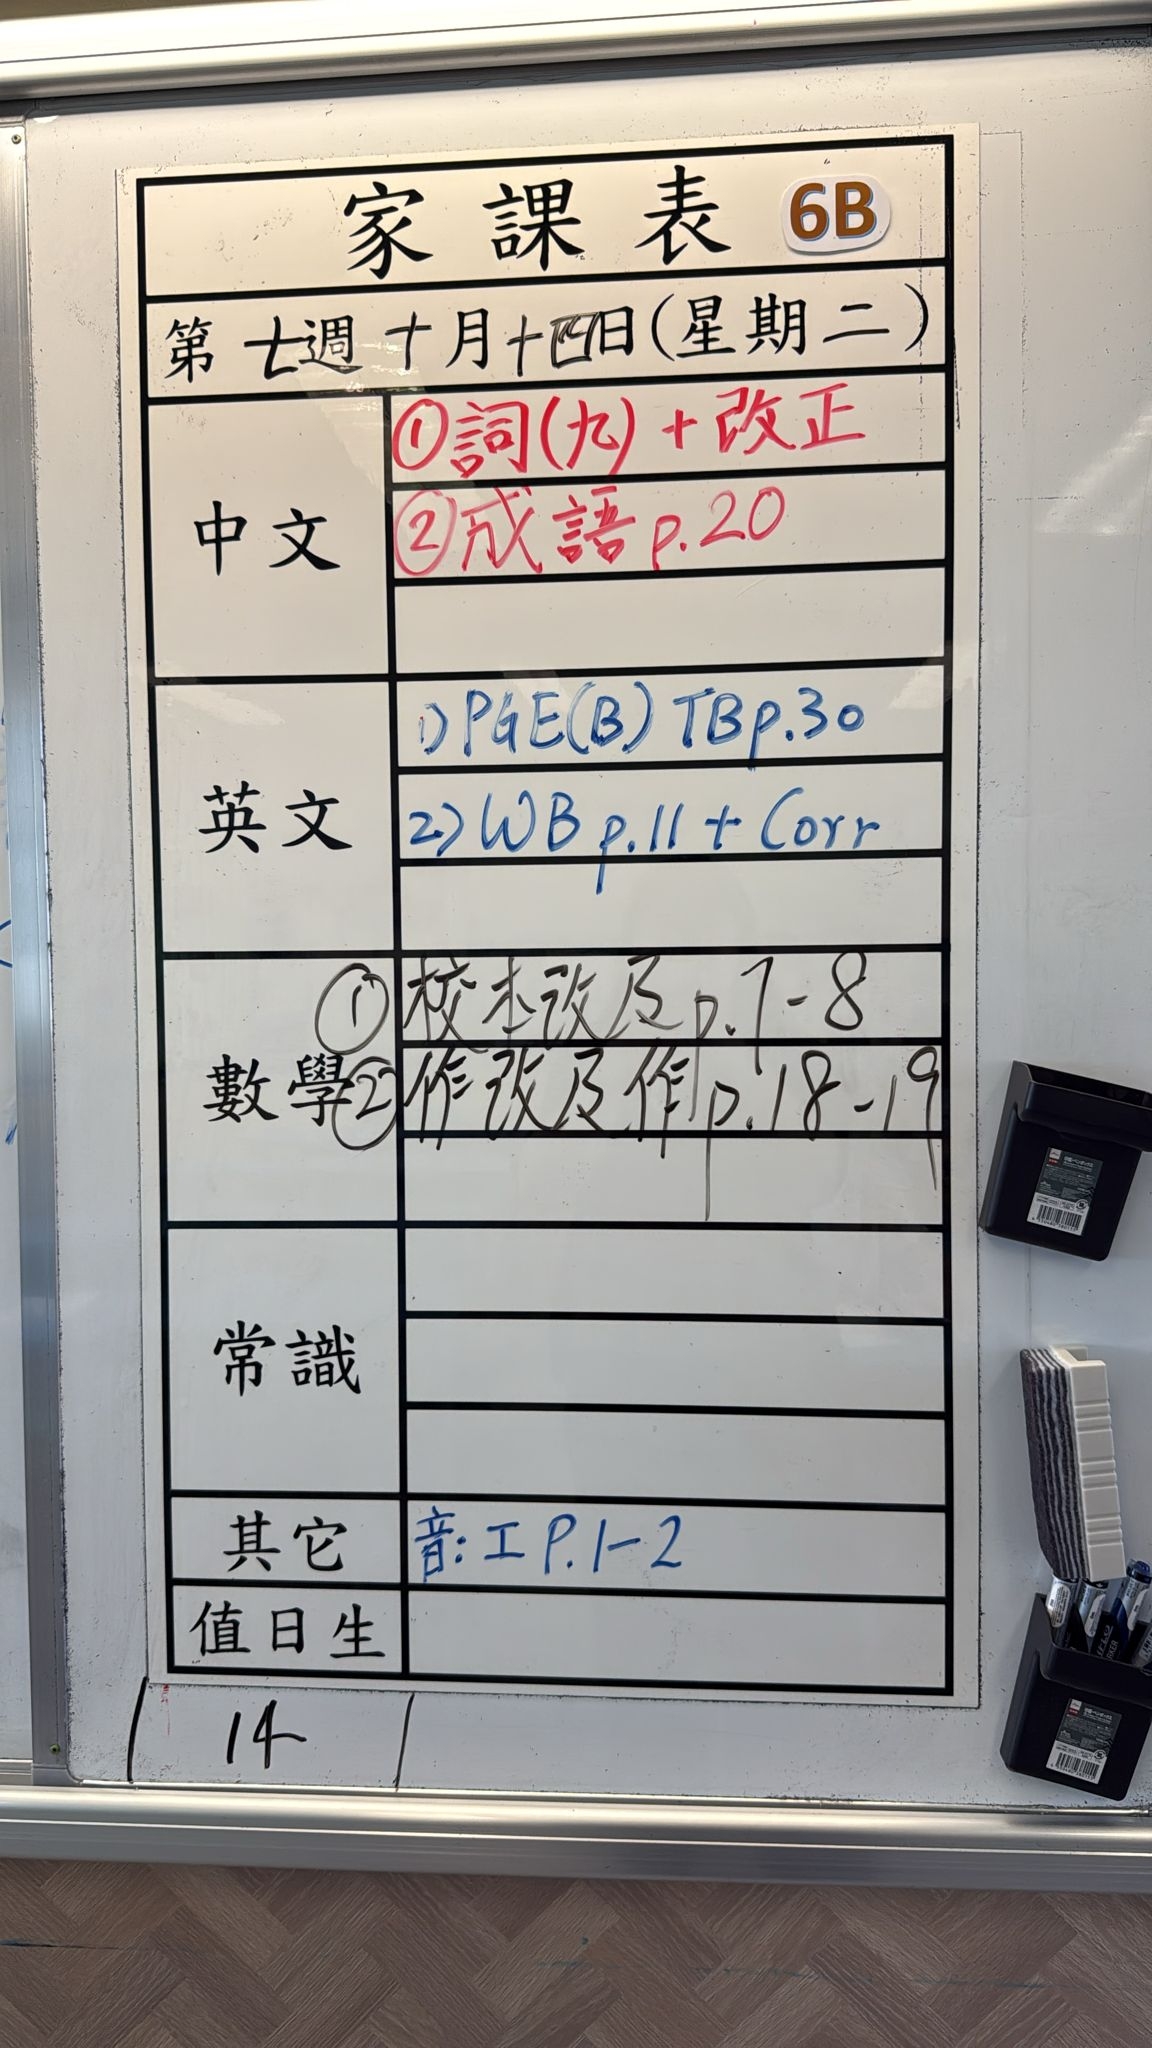 家課表 6B
第七週十月十四日(星期二)
中文
①詞(九)+改正
②成語p.20
英文
1) PGE(B) TBp.30
2) WB p.11 + Corr
數學
①校本改及p.7-8
②作改及作p.18-19
常識
其它
音:工 P.1-2
值日生
14